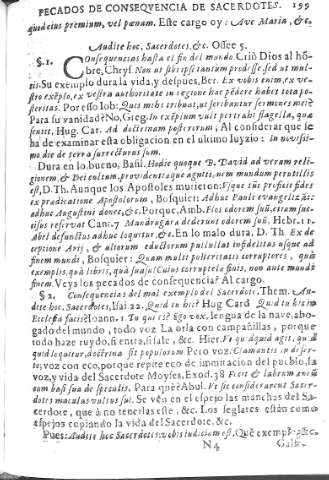 PECADOS DE CONSEQVENCIA DE SACERDOTES. 199
quod eius premium, vel pœnam. Este cargo oy: Ave Maria, &c.
Audite hoc, Sacerdotes, &c. Ossee 5.
§. 1. Consequencias hasta el fin del mundo. Criò Dios al hõ-
bre, Chrys. Non ut sibi ipsi tantùm prodesse sed ut mul-
tis. Su exemplo dura la vida, y despues, Ber. Ex vobis enim, ex ve-
stro exẽplo, ex vestra authoritate in regione hac pẽdere habet tota po-
steritas. Por esso Iob: Quis mihi tribuat, ut scribantur sermones mei?
Para su vanidad? No, Greg. In exẽplum vult pertrahi flagella, quæ
sensit, Hug. Car. Ad doctrinam posterorum; Al considerar que se
ha de examinar esta obligacion en el ultimo luyzio: In novissi-
mo die de terra surrecturus sum.
Dura en lo bueno, Basil. Hodie quoque B. David ad veram reli-
gionem, & Dei cultum, providentiaque agnitis, nem mundum perutilis
est, D. Th. Aunque los Apostoles murieron: Fisque sũt profusi fides
ex prædicatione Apostolorum, Bosquier: Adhuc Pauls evangelizãt:
adhuc Augustini donec, &c. Porque, Amb. Flos odorem suũ, etiam suc-
cisus reservat Cani: 7. Mandragora dederunt odorem suũ. Hebr. 11.
Abel defunctus adhuc loquitur, &c. En lo malo dura, D. Th Ex de-
ceptione Arij, & aliorum eductorum pullulat infidelitas usque ad
finem mundi, Bosquier: Quam multi posteritatis corruptores, quà
exemplis, quà libris, quà suasu! Cuius corruptela finis, non ante mundi
finem. Veys los pecados de consequencia? Al cargo.
§ 2. Consequencias del mal exemplo del Sacerdote. Them. Au-
dite hoc, Sacerdotes, Isai. 22. Quid tu hic? Hug Card Quid tu hic in
Ecclesia facis? Ioann. 1. Tu qui es? Ego vox, lengua de la nave, abo-
gado del mundo, todo voz. La orla con campañillas, porque
todo haze ruydo, si entra, si sale, &c. Hier.
quid loquitur, doctrina sit populorum Pero voz Clamantis in deser-
to, voz con eco, porque repite eco de immitacion del pueblo, la
voz, y vida del Sacerdote Moyses. Exod. 38 Fecit & labrum æneũ
cum basi sua de speculis. Para què? Abul. Ut se considerarent Sacer-
dotes maculas vultus sui. Se vèn en el espejo las manchas del Sa-
cerdote, que à no tenerlas este, &c. Los seglares estàn como
espejos copiando la vida del Sacerdote, &c.
Pues: Audite hoc Sacerdotes: vobis iudicium est. Què exemplo, &c.
N4